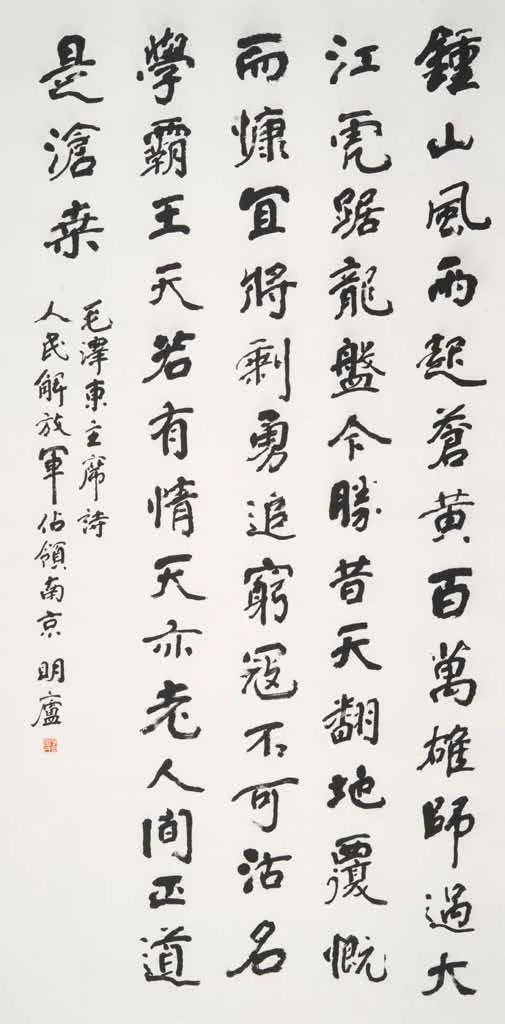 鍾山風雨起蒼黃百萬雄師過大
江虎踞龍盤今勝昔天翻地覆慨
而慷宜將剩勇追窮寇不可沽名
學霸王天若有情天亦老人間正道
是滄桑
毛澤東主席詩
人民解放軍佔領南京 明廬